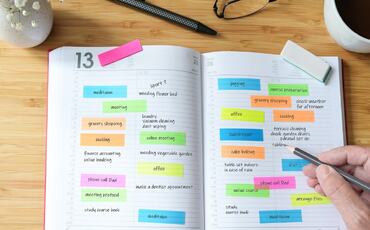 13
sport ?
meditation
weeding flower bed
meeting
laundry
vacuum cleaning
dust wiping
grocery shopping
cooking
video meeting
finance accounting
online banking
weeding vegetable garden
office
phone call Dad
make a dentist apointment
meeting protocol
study course book
meditation
jogging
course preparation
grocery shopping
check weather
for afternoon
office
cooking
terrace cleaning
check garden chairs
cake baking
table set indoors
in case of rain
phone call Dad
online course
arrange
study
course book
meditation